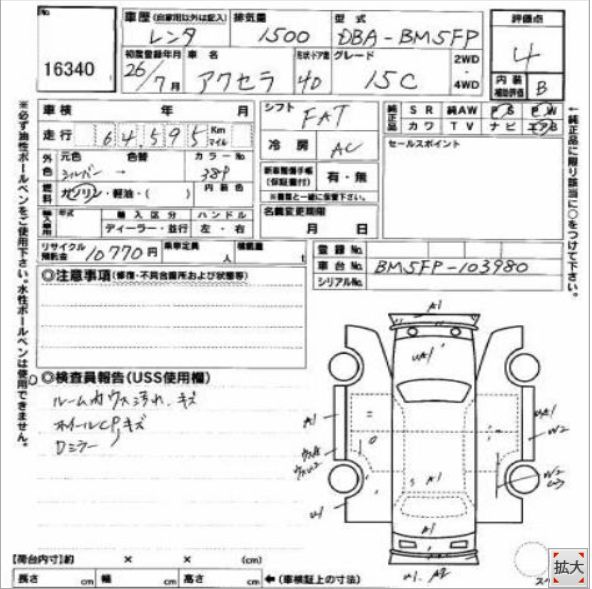 No.
16340
車歴 (自家用以外は記入)
レンタ
排気量
1500
型式
DBA-BM5FP
評価点
4
初度登録年月
26/7月
車名
アクセラ
形状・ドア数
4D
グレード
15C
2WD
・
4WD
内装
補助評価
B
※必ず油性ボールペンをご使用下さい。水性ボールペンは使用できません。
車検 年 月
シフト
FAT
純正品
SR 純AW PS PW
カワ TV ナビ エアB
走行 64,595 Km マイル
冷房
AC
セールスポイント
外色
元色 色替 カラーNo.
シルバー → 38P
燃料
ガソリン・軽油・( )
内装色
新車整備手帳
(保証書付)
有・無
※書類と一緒に保管下さい。
輸入車用
年式 輸入区分 ハンドル
ディーラー・並行 左・右
名義変更期限
月 日
←純正品に限り該当に○をつけて下さい。
リサイクル
預託金
10770円
乗車定員
人
積載量
t
登録No.
車台No.
BM5FP-103980
シリアルNo.
◎注意事項(修復・不具合箇所および状態等)
◎検査員報告(USS使用欄)
ルーム内ウス汚れ、キズ
ホイールCPキズ
Dミラー〃
A1
UA1
A1
UA1
W2
W2
A1
U1
A1
U1. A2
【荷台内寸】約 × × (cm)
長さ cm 幅 cm 高さ cm
←(車検証上の寸法)
ス
拡大